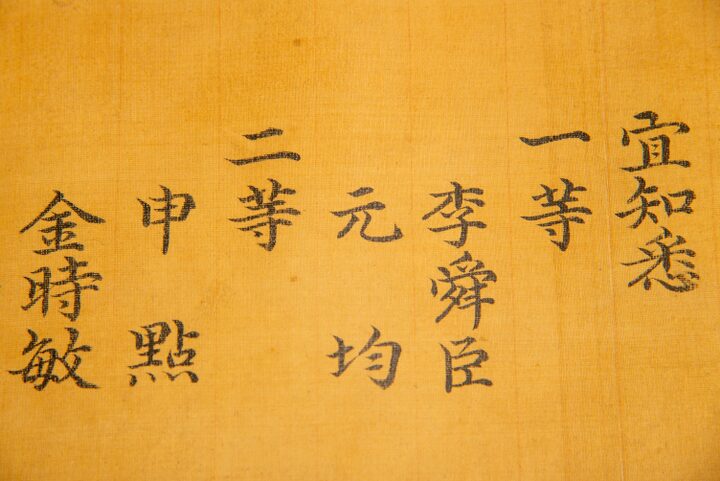 宜知悉
一等
李舜臣
元均
二等
申點
金時敏